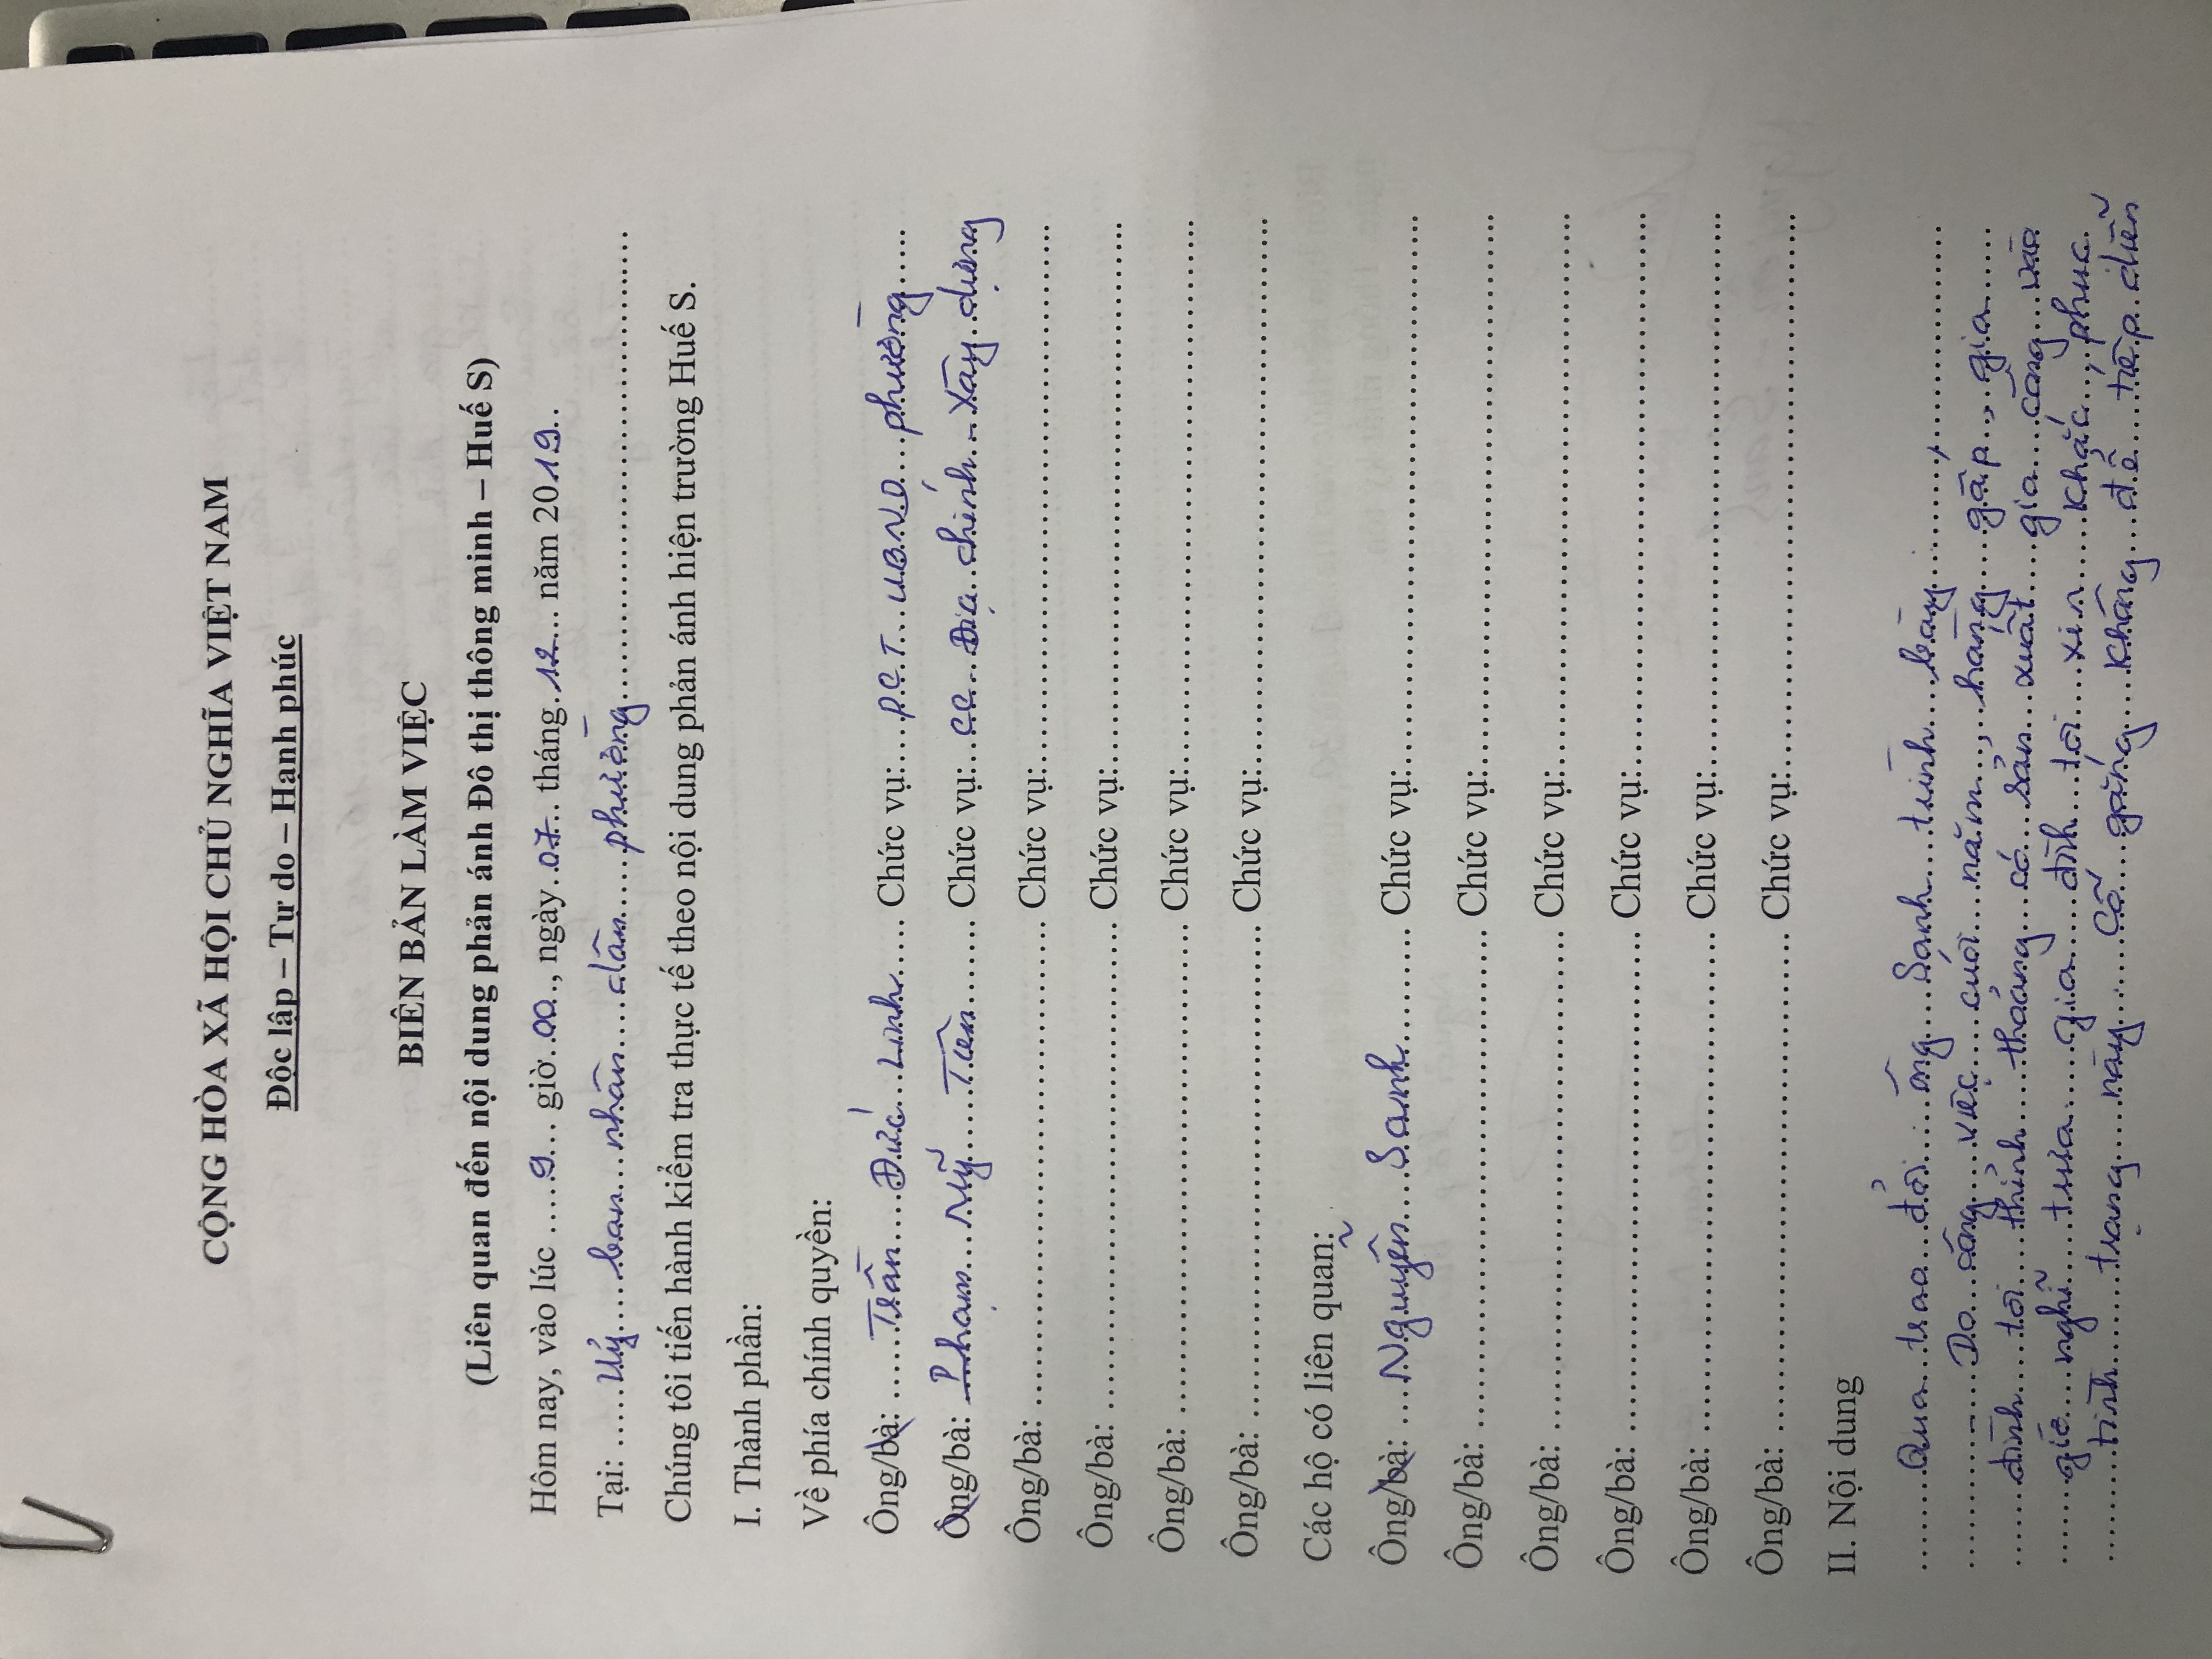 CỘNG HÒA XÃ HỘI CHỦ NGHĨA VIỆT NAM
Độc lập – Tự do – Hạnh phúc
BIÊN BẢN LÀM VIỆC
(Liên quan đến nội dung phản ánh Đô thị thông minh – Huế S)
Hôm nay, vào lúc ....9... giờ..00.., ngày..07... tháng..12... năm 2019..
Tại: ......Uỷ.....ban....nhân....dân.....phường..........
Chúng tôi tiến hành kiểm tra thực tế theo nội dung phản ánh hiện trường Huế S.
I. Thành phần:
Về phía chính quyền:
Ông/bà: ......Trần....Đức....Linh..... Chức vụ:....P.C.T...U.B.N.D...phường.....
Ông/bà: Phạm...Mỹ.....Tiên....... Chức vụ:...CC...Địa..chính..-Xây..dựng
Ông/bà: .......... Chức vụ:..........
Ông/bà: .......... Chức vụ:..........
Ông/bà: .......... Chức vụ:..........
Ông/bà: .......... Chức vụ:..........
Các hộ có liên quan:
Ông/bà: ....Nguyễn....Sanh......... Chức vụ:..........
Ông/bà: .......... Chức vụ:..........
Ông/bà: .......... Chức vụ:..........
Ông/bà: .......... Chức vụ:..........
Ông/bà: .......... Chức vụ:..........
Ông/bà: .......... Chức vụ:..........
II. Nội dung
.........Qua....trao...đổi....ông....Sanh....trình...bày..........
.............- Do...công....việc....cuối....năm..., hàng....gấp.., gia......
......đình....tôi....thỉnh....thoảng...có...sản...xuất...gia...công...vào
.......giờ....nghỉ.....trưa.....gia.....đình....tôi....xin.....khắc..phục.
........tình........trạng....này......cố....gắng....không...để....tiếp.diễn